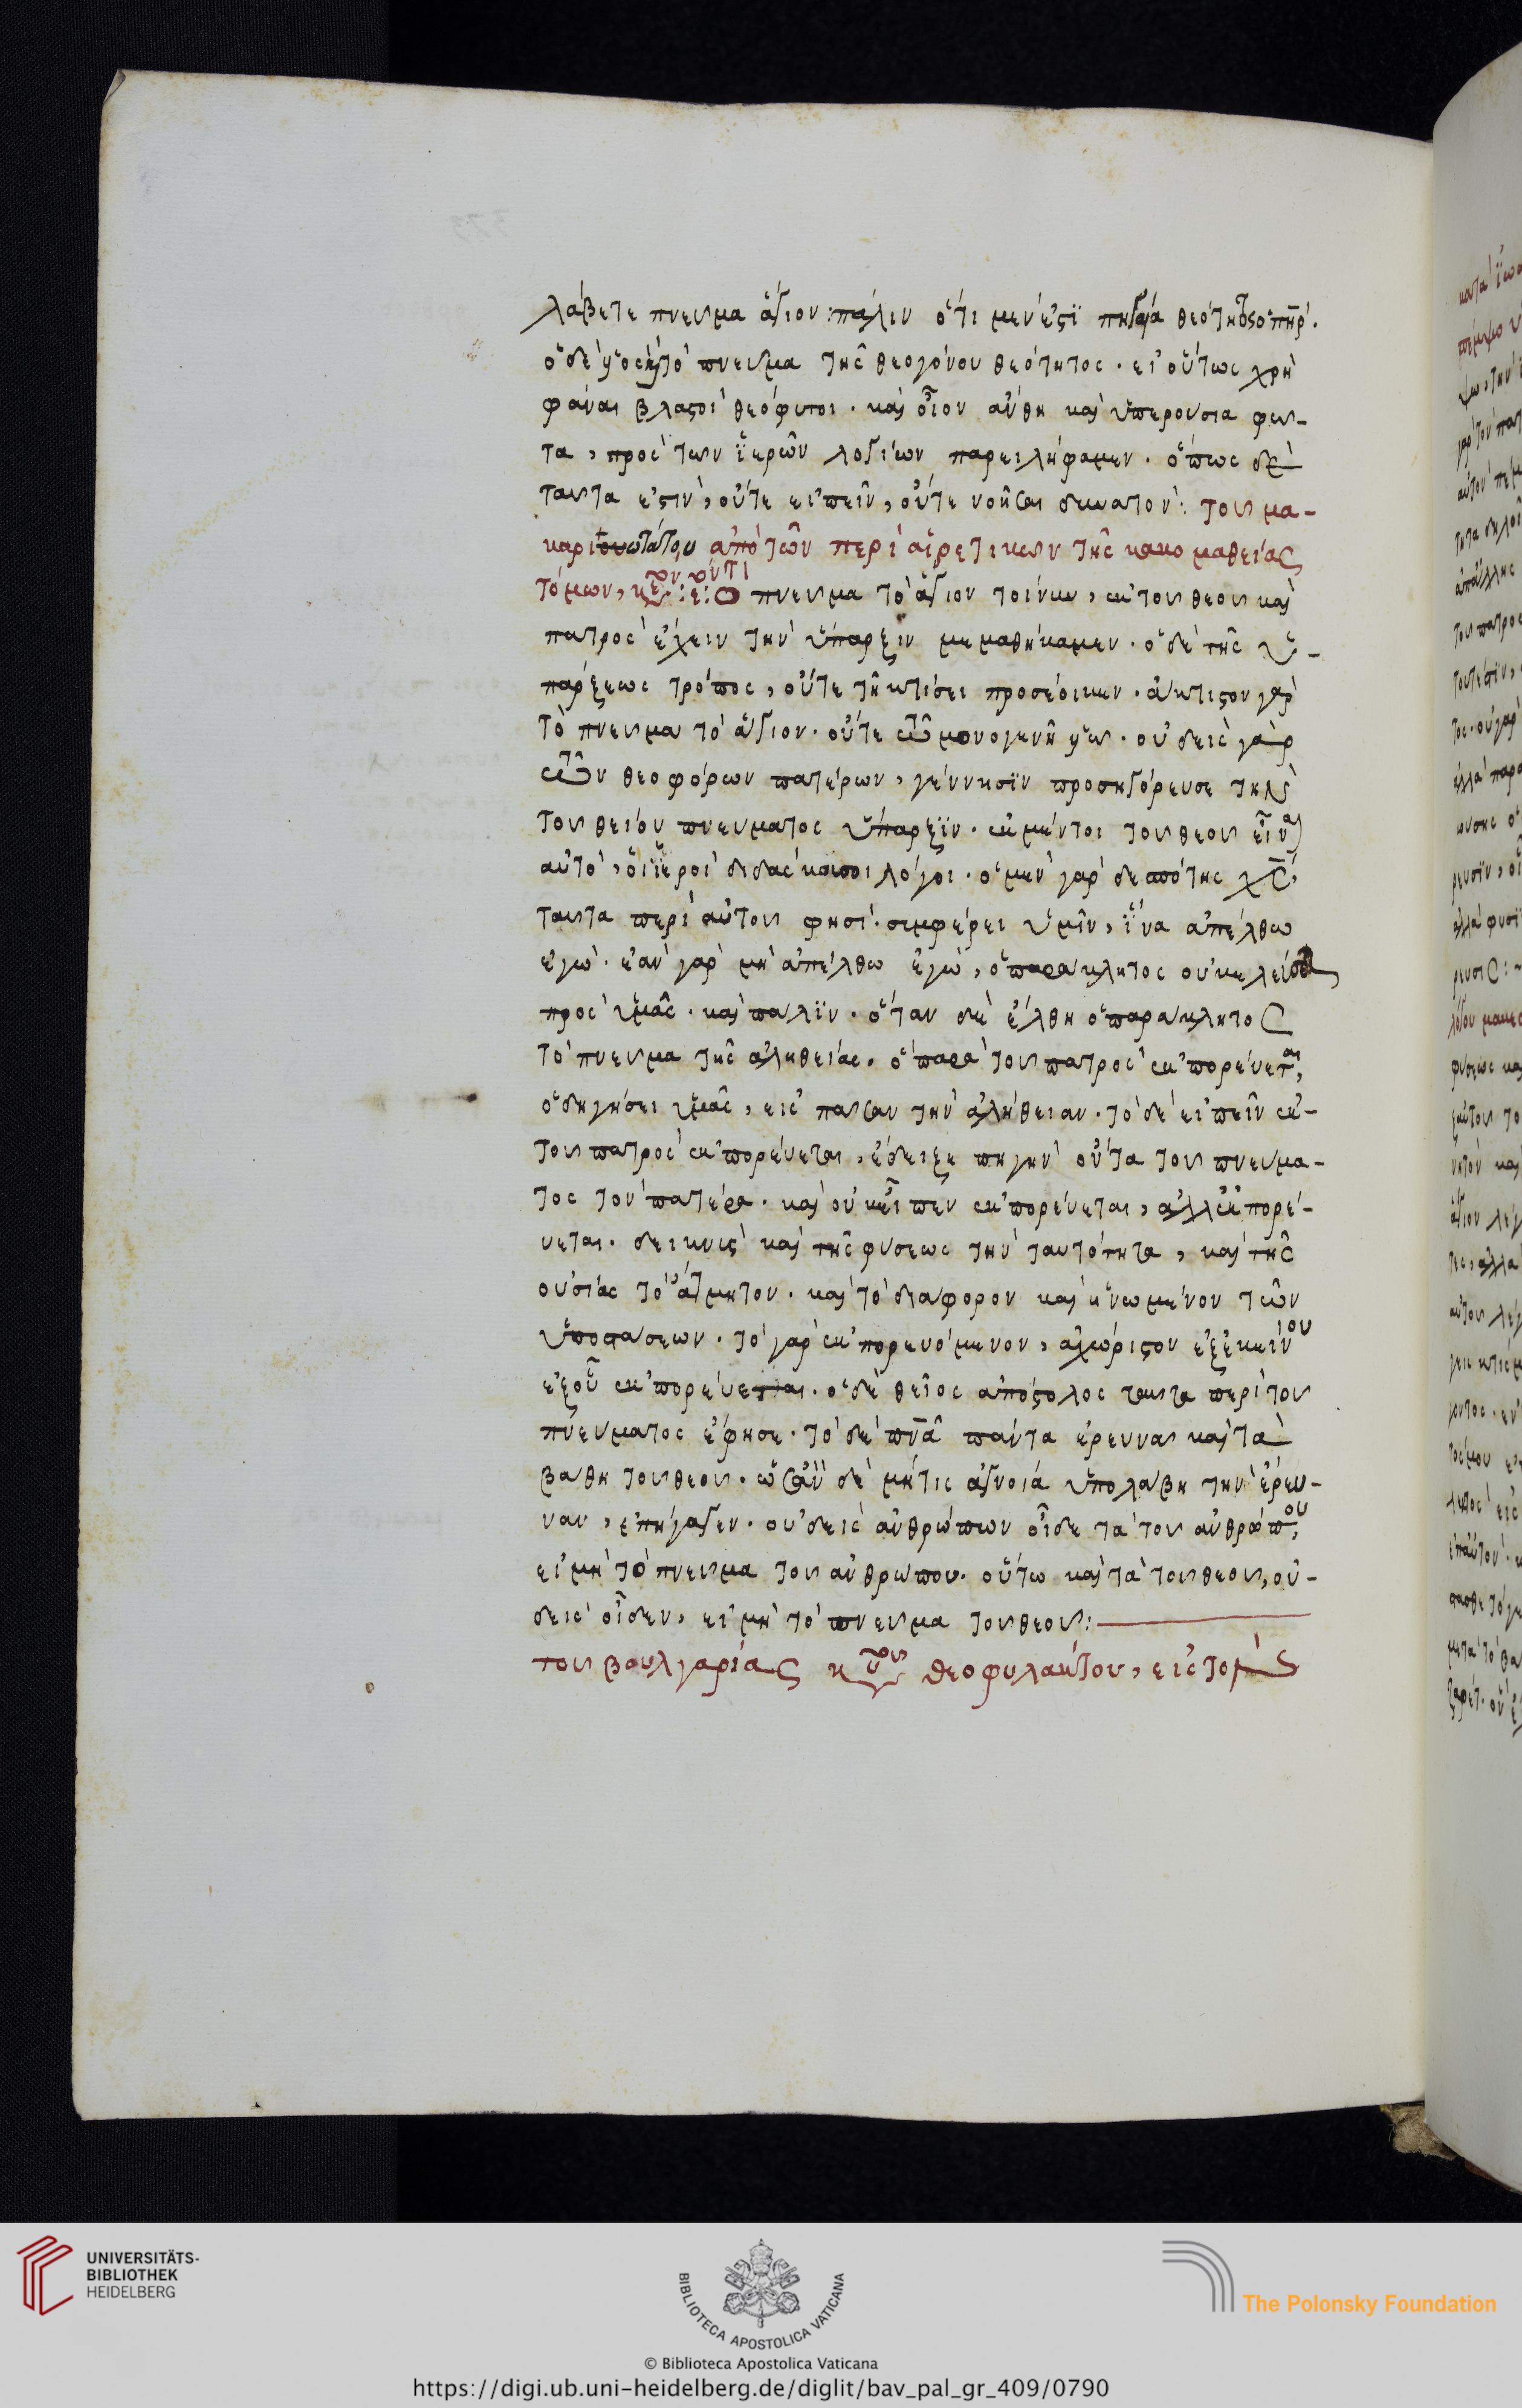 λάβετε πνεῦμα ἅγιον: πάλιν ὅτι μὲν ἐστὶ πηγαία θεότητος ὁ πηρ.
ὁ δὲ υἱος καὶ τὸ πνεῦμα τῆς θεογόνου θεότητος. εἰ οὕτως χρὴ
φάναι βλαστοὶ θεόφυτοι. καὶ οἷον ἄνθη καὶ ὑπερούσια φω-
τα, προς των ἱερῶν λογίων παρειλήφαμεν. ὅπως δὲ
ταυτα ἐστιν, οὔτε εἰπεῖν, οὔτε νοῆσαι δυνατον: του μα-
καρι ἀπὸ τῶν περὶ αἱρετικων τῆς κακομαθείας
τόμων, πνευμα τὸ ἅγιον τοίνυν, ἐκ του θεου καὶ
πατρος ἔχειν την ὕπαρξιν μεμαθήκαμεν. ὁ δὲ τῆς ὑ-
πάρξεως τρόπος, οὔτε τῆ κτίσει προσέοικεν. ἄκτιστον γαρ
τὸ πνευμα τὸ ἅγιον. οὔτε τῶ μονογενῆ υἱω. οὐδεὶς γὰρ
τῶν θεοφόρων πατέρων, γέννησϊν προσηγόρευσε τὴν
του θείου πνευματος ὕπαρξϊν. ἐκ μέντοι του θεου εἶναι
αὐτὸ, οἱ ἱεροὶ διδάσκουσι λόγοι. ὁ μὲν γαρ δεσπότης χς
ταυτα περὶ αὐτου φησί. συμφέρει ὑμῖν, ἵνα ἀπέλθω
ἐγώ. ἐαν γαρ μὴ ἀπέλθω ἐγὼ, ὁ παρακλητος οὐκ ελεύσεται
προς ὑμᾶς. καὶ παλϊν. ὅταν δὲ ἔλθη ὁ παρακλητος
τὸ πνευμα τῆς ἀληθείας. ὃ παρα του πατρος ἐκπορεύεται,
ὁδηγήσει ὑμᾶς, εἰς πασαν την ἀλήθειαν. τὸ δὲ εἰπεῖν ἐκ-
του πατρος ἐκπορεύεται, ἔδειξε πηγην ὄντα του πνευμα-
τος τὸν πατέρα. καὶ οὐκ εἶπεν ἐκπορεύσεται, ἀλλ ἐκπορεύ-
εται. δεικνυς καὶ τῆς φυσεως την ταυτότητα, καὶ τῆς
οὐσίας τὸ ἄτμητον. καὶ τὸ διαφορον καὶ ἡνωμένον τῶν
ὑποστάσεων. τὸ γαρ ἐκπορευόμενον, ἀχώριστον ἐξ ἐκείνου
ἐξ οὗ ἐκπορεύεται. ὁ δὲ θεῖος ἀπόστολος ταυτα περὶ του
πνεύματος ἔφησε. τὸ δὲ πνα πάντα ἐρευνα καὶ τὰ
βαθη του θεου. ὡς ἂν δὲ μήτις ἀγνοία ὑπολαβη την ἔρευ-
ναν, ἐπήγαγεν. οὐδεὶς ἀνθρώπων οἶδε τα του ἀνθρώπου,
εἰ μὴ τὸ πνευμα του ἀνθρωπου. οὕτω καὶ τα του θεου, οὐ-
δεὶς οἶδεν, εἰ μὴ τὸ πνευμα του θεου:
του βουλγαρίας θεοφυλάκτου, εἰς το
UNIVERSITÄTS-
BIBLIOTHEK
HEIDELBERG
BIBLIOTECA APOSTOLICA VATICANA
The Polonsky Foundation
© Biblioteca Apostolica Vaticana
https://digi.ub.uni-heidelberg.de/diglit/bav_pal_gr_409/0790